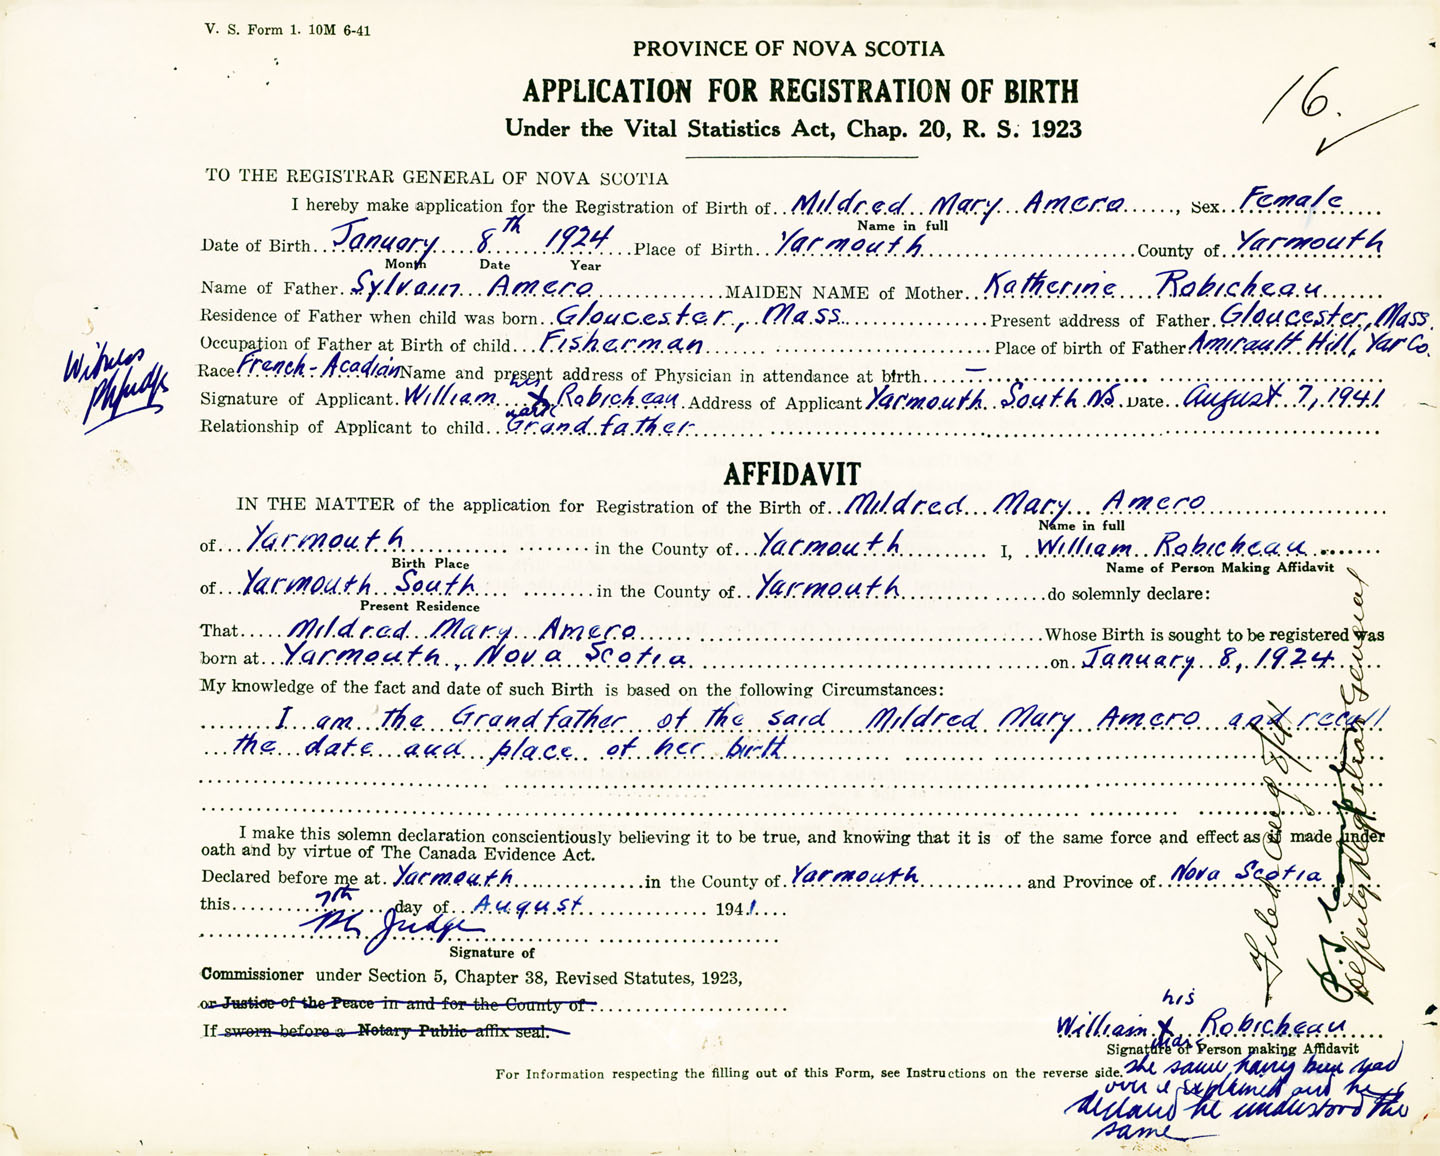 V. S. Form 1. 10M 6-41
PROVINCE OF NOVA SCOTIA
APPLICATION FOR REGISTRATION OF BIRTH
Under the Vital Statistics Act, Chap. 20, R. S. 1923
16.
TO THE REGISTRAR GENERAL OF NOVA SCOTIA
I hereby make application for the Registration of Birth of Mildred Mary Amero, Sex Female
Name in full
Date of Birth January 8th 1924 Place of Birth Yarmouth County of Yarmouth
Month Date Year
Name of Father Sylvain Amero MAIDEN NAME of Mother Katherine Robicheau
Residence of Father when child was born Gloucester, Mass. Present address of Father Gloucester, Mass.
Occupation of Father at Birth of child Fisherman Place of birth of Father Amirault Hill, Yar Co.
Race French-Acadian Name and present address of Physician in attendance at birth —
Witness
Signature of Applicant William his X mark Robicheau Address of Applicant Yarmouth South N.S. Date August 7, 1941
Relationship of Applicant to child Grandfather
AFFIDAVIT
IN THE MATTER of the application for Registration of the Birth of Mildred Mary Amero
Name in full
of Yarmouth in the County of Yarmouth I, William Robicheau
Birth Place Name of Person Making Affidavit
of Yarmouth South in the County of Yarmouth do solemnly declare:
Present Residence
That Mildred Mary Amero Whose Birth is sought to be registered was
born at Yarmouth, Nova Scotia on January 8, 1924
My knowledge of the fact and date of such Birth is based on the following Circumstances:
I am the Grandfather of the said Mildred Mary Amero and recall
the date and place of her birth
I make this solemn declaration conscientiously believing it to be true, and knowing that it is of the same force and effect as if made under
oath and by virtue of The Canada Evidence Act.
Declared before me at Yarmouth in the County of Yarmouth and Province of Nova Scotia
this 7th day of August 1941
Judge
Signature of
Commissioner under Section 5, Chapter 38, Revised Statutes, 1923,
or Justice of the Peace in and for the County of
If sworn before a Notary Public affix seal.
William his X mark Robicheau
Signature of Person making Affidavit
For Information respecting the filling out of this Form, see Instructions on the reverse side.
the same having been read
over & explained and he
declared he understood the
same
Filed Aug 8/41
Deputy Registrar General